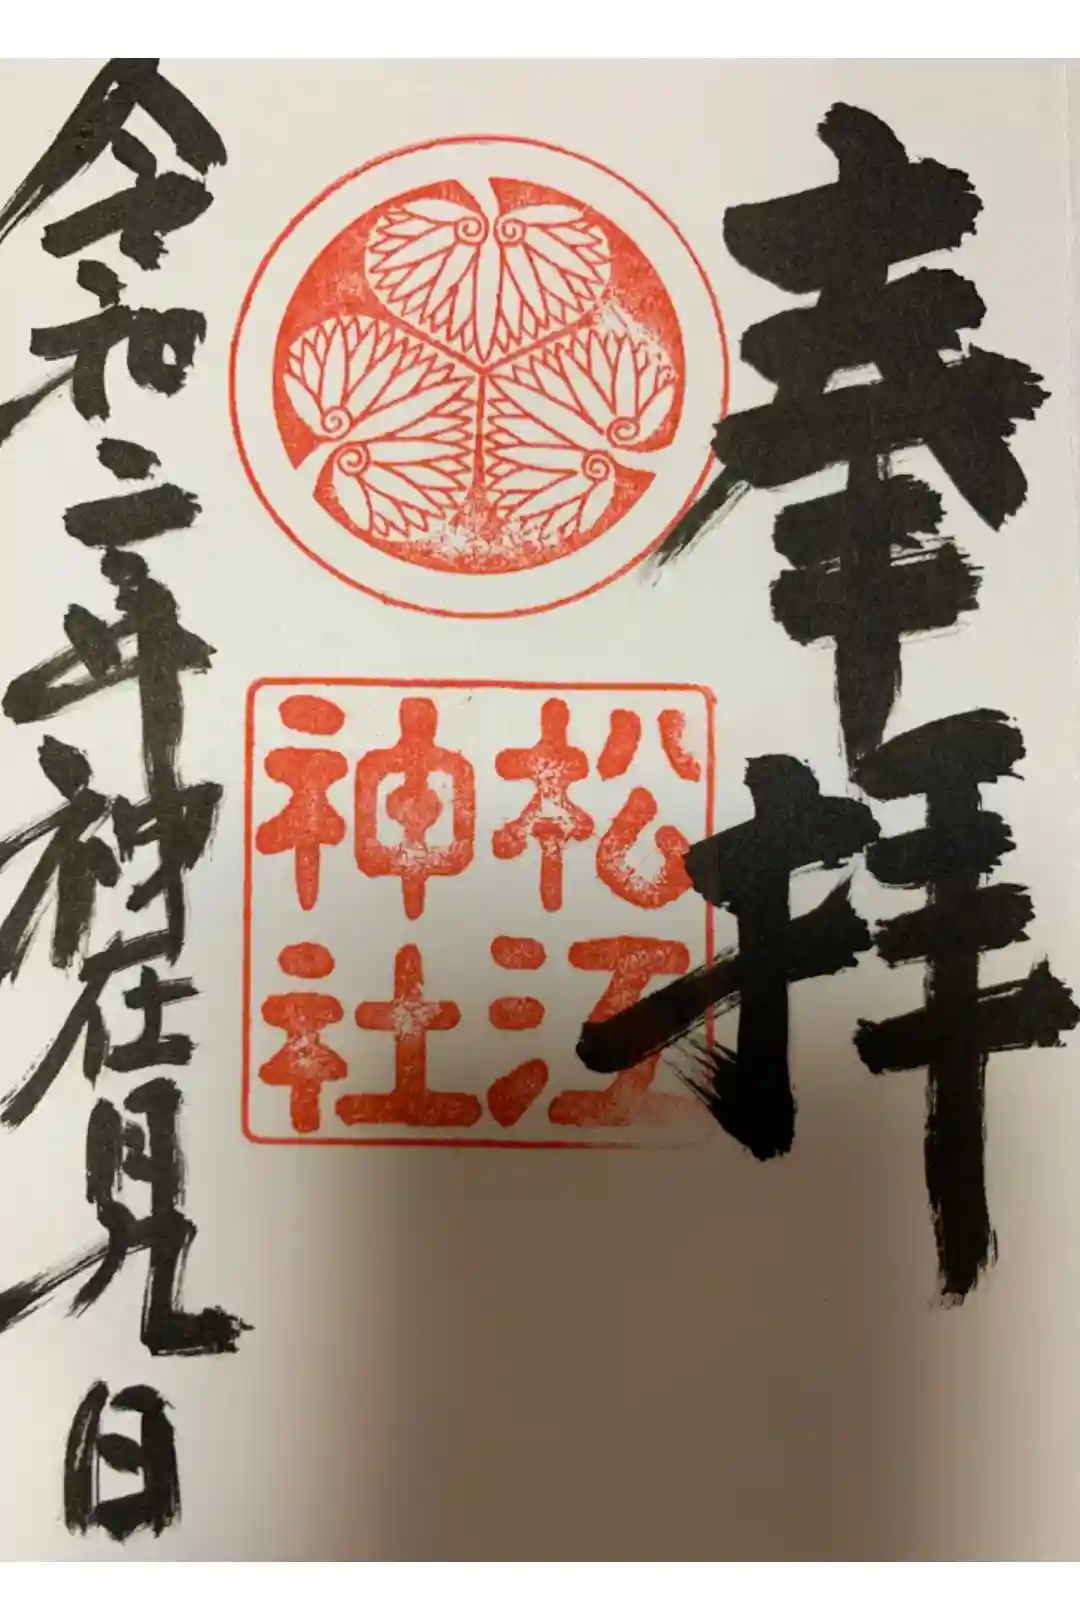 奉拝
松江
神社
令和二年神在月九日